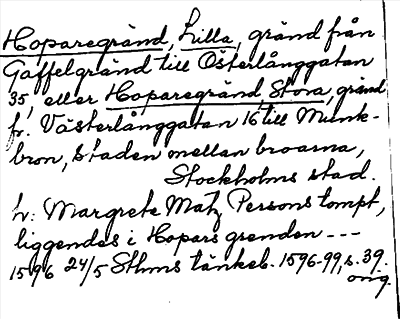 Hoparegränd, Lilla, gränd från
Gaffelgränd till Österlånggatan
35, eller Hoparegränd, Stora, gränd
fr. Västerlånggatan 16 till Munk-
bron, Staden mellan broarna,
Stockholms stad.
hr: Margrete Matz Persons tompt,
liggendes i Hopars grenden ---
1596 24/5 Sthms tänkeb. 1596-99, s. 39.
orig.